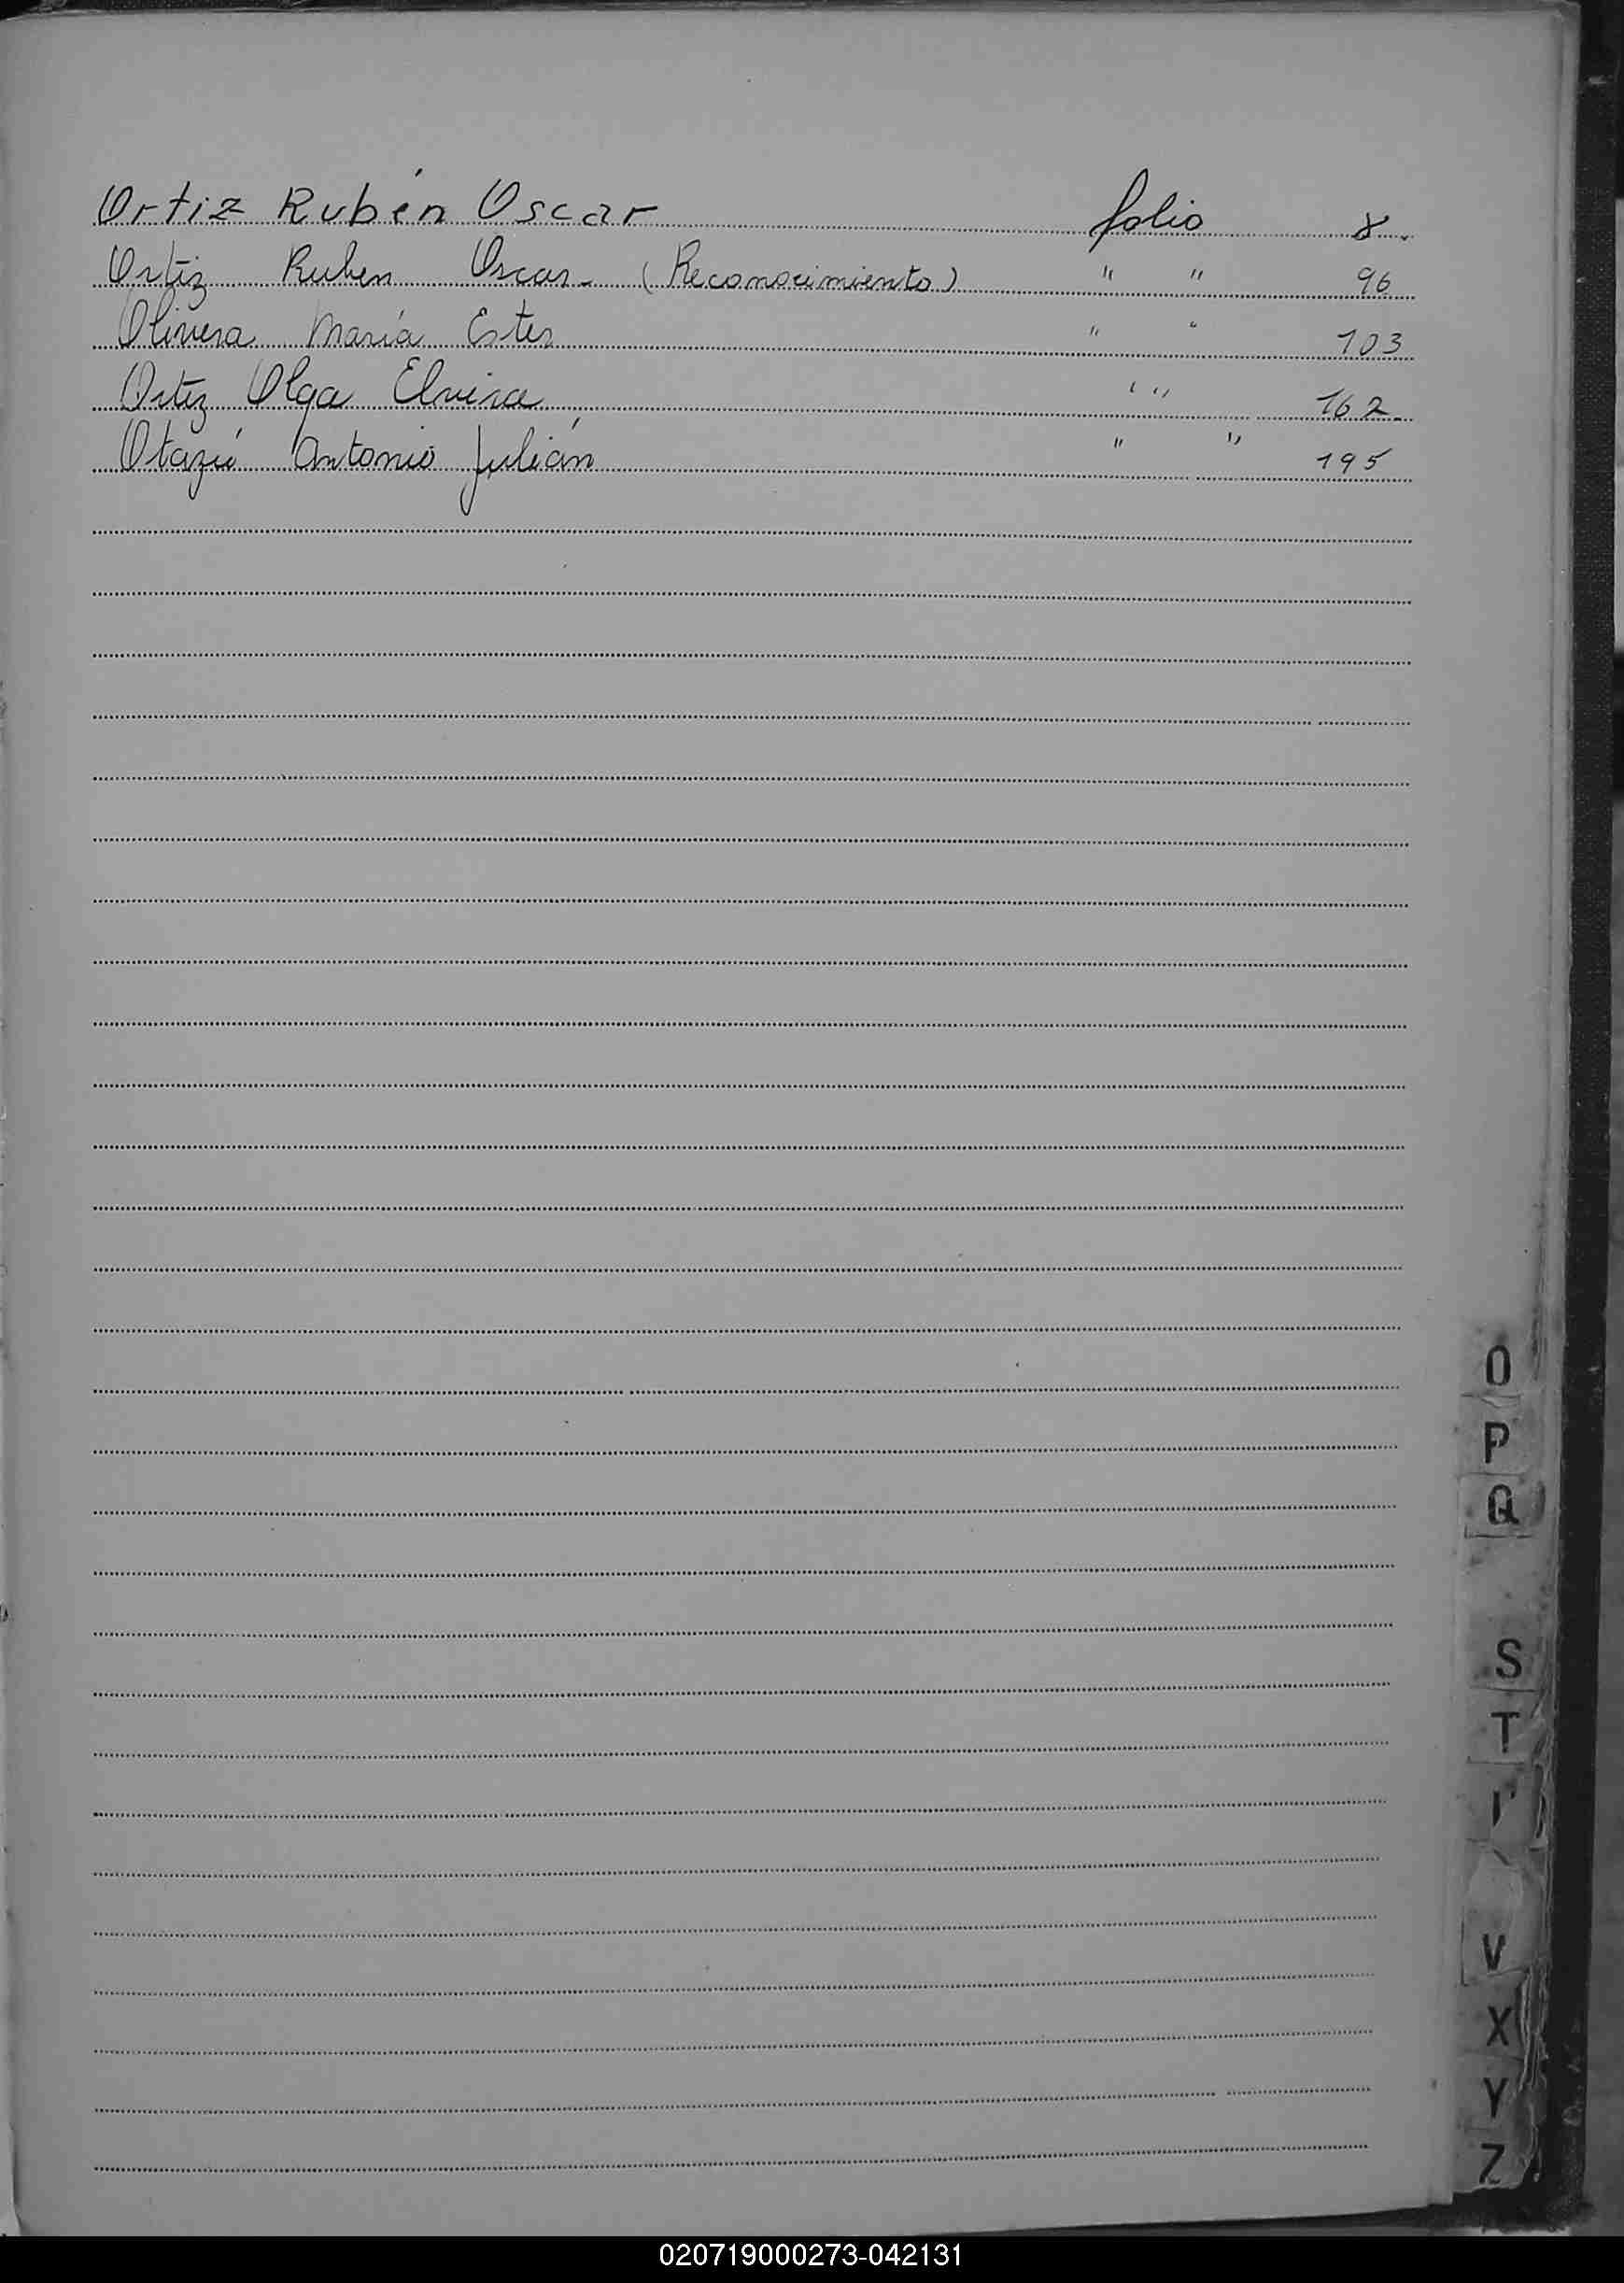 Ortiz Rubén Oscar folio 8.
Ortiz Ruben Oscar - (Reconocimiento) " " 96
Olivera María Ester " " 103
Ortiz Olga Elvira " " 162
Otazú Antonio Julián " " 195
O
P
Q
S
T
V
X
Y
Z
020719000273-042131